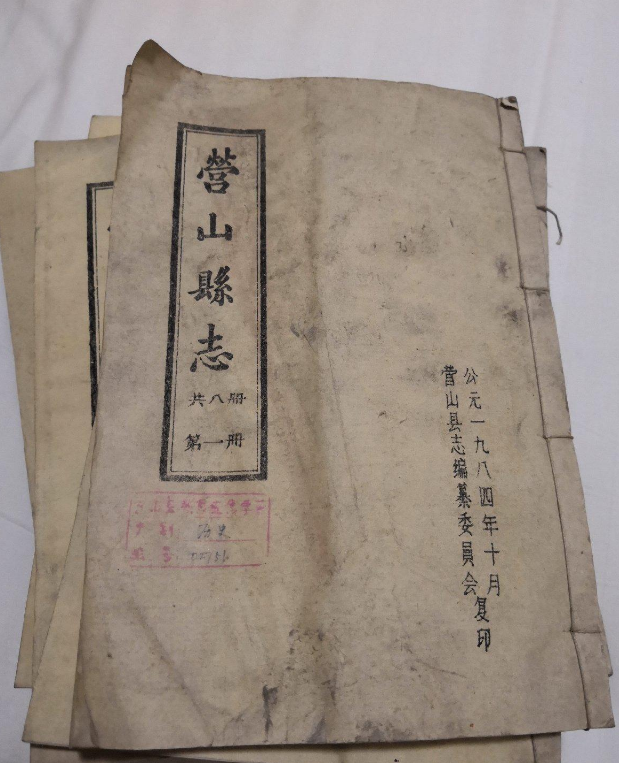 營山縣志
共八册
第一册
公元一九八四年十月
营山县志编纂委員会复印